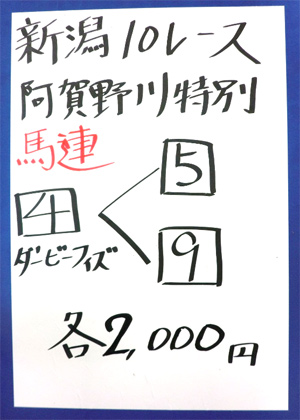 新潟10レース
阿賀野川特別
馬連
5
4
ダービーフィズ
9
各2,000円